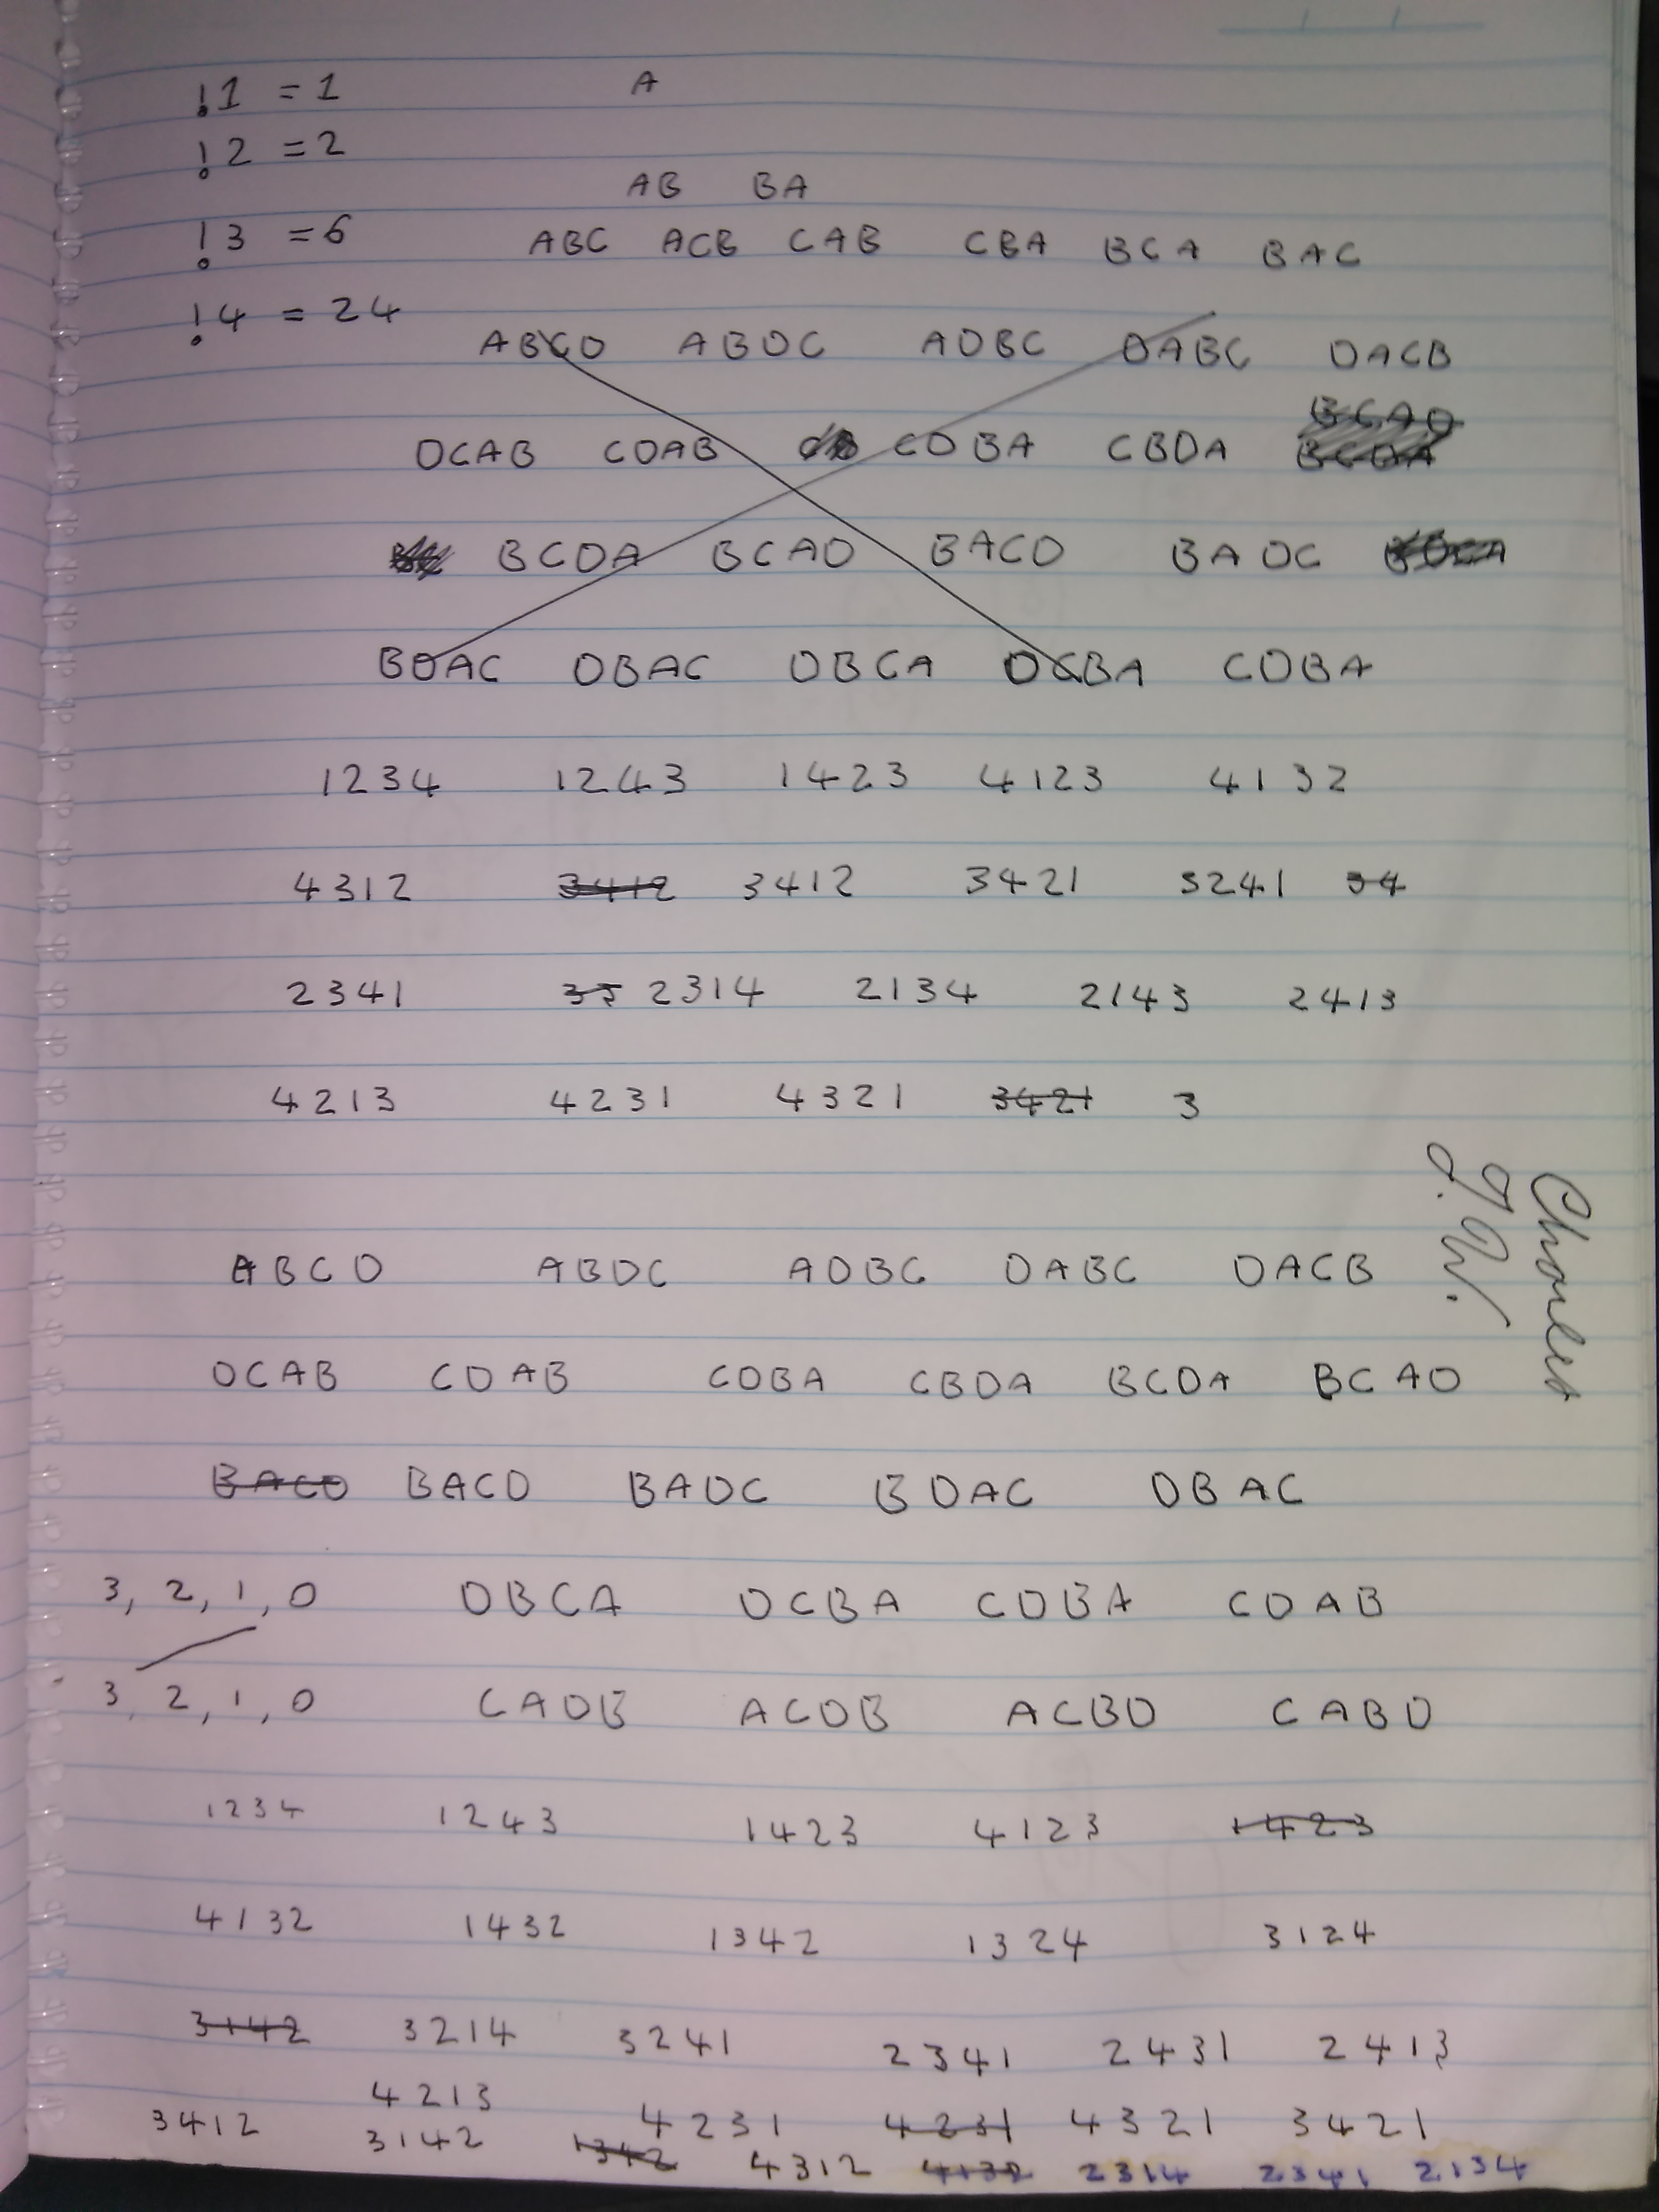 !1 = 1 A
!2 = 2
AB BA
!3 = 6 ABC ACB CAB CBA BCA BAC
!4 = 24
ABCD ABDC ADBC DABC DACB
BCAD
DCAB CDAB CDBA CBDA BCDA
BCDA BCAD BACD BADC
BDAC DBAC DBCA DCBA CDBA
1234 1243 1423 4123 4132
4312 3412 3412 3421 3241 34
2341 2314 2134 2143 2413
4213 4231 4321 3421 3
Charles
J.W.
ABCD ABDC ADBC DABC DACB
DCAB CDAB CDBA CBDA BCDA BCAD
BACD BACD BADC BDAC DBAC
3, 2, 1, 0 DBCA DCBA CDBA CDAB
3, 2, 1, 0 CADB ACDB ACBD CABD
1234 1243 1423 4123 1423
4132 1432 1342 1324 3124
3142 3214 3241 2341 2431 2413
4213
3412 4231 4231 4321 3421
3142 1342 4312 4132 2314 2341 2134